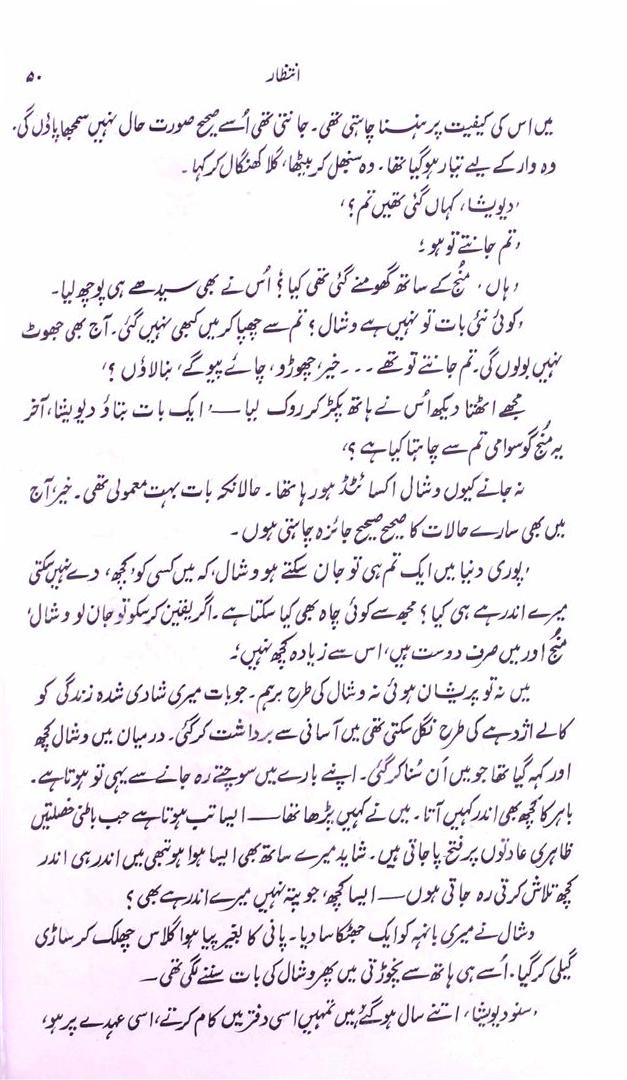 انتظار ۵۰
میں اس کی کیفیت پر ہنسنا چاہتی تھی۔ جانتی تھی اُسے صحیح صورت حال نہیں سمجھا پاؤں گی۔
وہ وار کے لیے تیار ہو گیا تھا۔ وہ سنبھل کر بیٹھا، گلا کھنگال کر کہا۔
'دیویشا، کہاں گئی تھیں تم؟'
'تم جانتے تو ہو؟
'ہاں، مُنج کے ساتھ گھومنے گئی تھی کیا؟' اُس نے بھی سیدھے ہی پوچھ لیا۔
'کوئی نئی بات تو نہیں ہے وشال؟ تم سے چھپا کر میں کبھی نہیں گئی۔ آج بھی جھوٹ
نہیں بولوں گی۔ تم جانتے تو تھے ۔۔۔ خیر، چھوڑو، چائے پیو گے، بنا لاؤں؟'
مجھے اٹھتا دیکھ اُس نے ہاتھ پکڑ کر روک لیا —' ایک بات بتاؤ دیویشا، آخر
یہ مُنج گوسوامی تم سے چاہتا کیا ہے؟'
نہ جانے کیوں وشال اکسائٹڈ ہو رہا تھا۔ حالانکہ بات بہت معمولی تھی۔ خیر، آج
میں بھی سارے حالات کا صحیح صحیح جائزہ چاہتی ہوں۔
'پوری دنیا میں ایک تم ہی تو جان سکتے ہو وشال، کہ میں کسی کو 'کچھ' دے نہیں سکتی
میرے اندر ہے ہی کیا؟ مجھ سے کوئی چاہ بھی کیا سکتا ہے۔ اگر یقین کر سکو تو جان لو وشال'
مُنج اور میں صرف دوست ہیں، اس سے زیادہ کچھ نہیں'۔
میں نہ تو پریشان ہوئی نہ وشال کی طرح برہم۔ جو بات میری شادی شدہ زندگی کو
کالے اژدہے کی طرح نگل سکتی تھی میں آسانی سے برداشت کر گئی۔ درمیان میں وشال کچھ
اور کہہ گیا تھا جو میں اَن سُنا کر گئی۔ اپنے بارے میں سوچتے رہ جانے سے یہی تو ہوتا ہے۔
باہر کا کچھ بھی اندر کہیں آتا۔ میں نے کہیں پڑھا تھا — ایسا تب ہوتا ہے جب باطنی خصلتیں
ظاہری عادتوں پر فتح پا جاتی ہیں۔ شاید میرے ساتھ بھی ایسا ہوا ہو تبھی میں اندر ہی اندر
کچھ تلاش کرتی رہ جاتی ہوں — ایسا کچھ، جو پتہ نہیں میرے اندر ہے بھی؟
وشال نے میری بانہہ کو ایک جھٹکا سا دیا۔ پانی کا بغیر پیا ہوا گلاس چھلک کر ساڑی
گیلی کر گیا۔ اُسے ہی ہاتھ سے نچوڑتی میں پھر وشال کی بات سننے لگی تھی—
'سنو دیویشا، اتنے سال ہو گئے ہیں تمہیں اسی دفتر میں کام کرتے، اسی عہدے پر ہو،